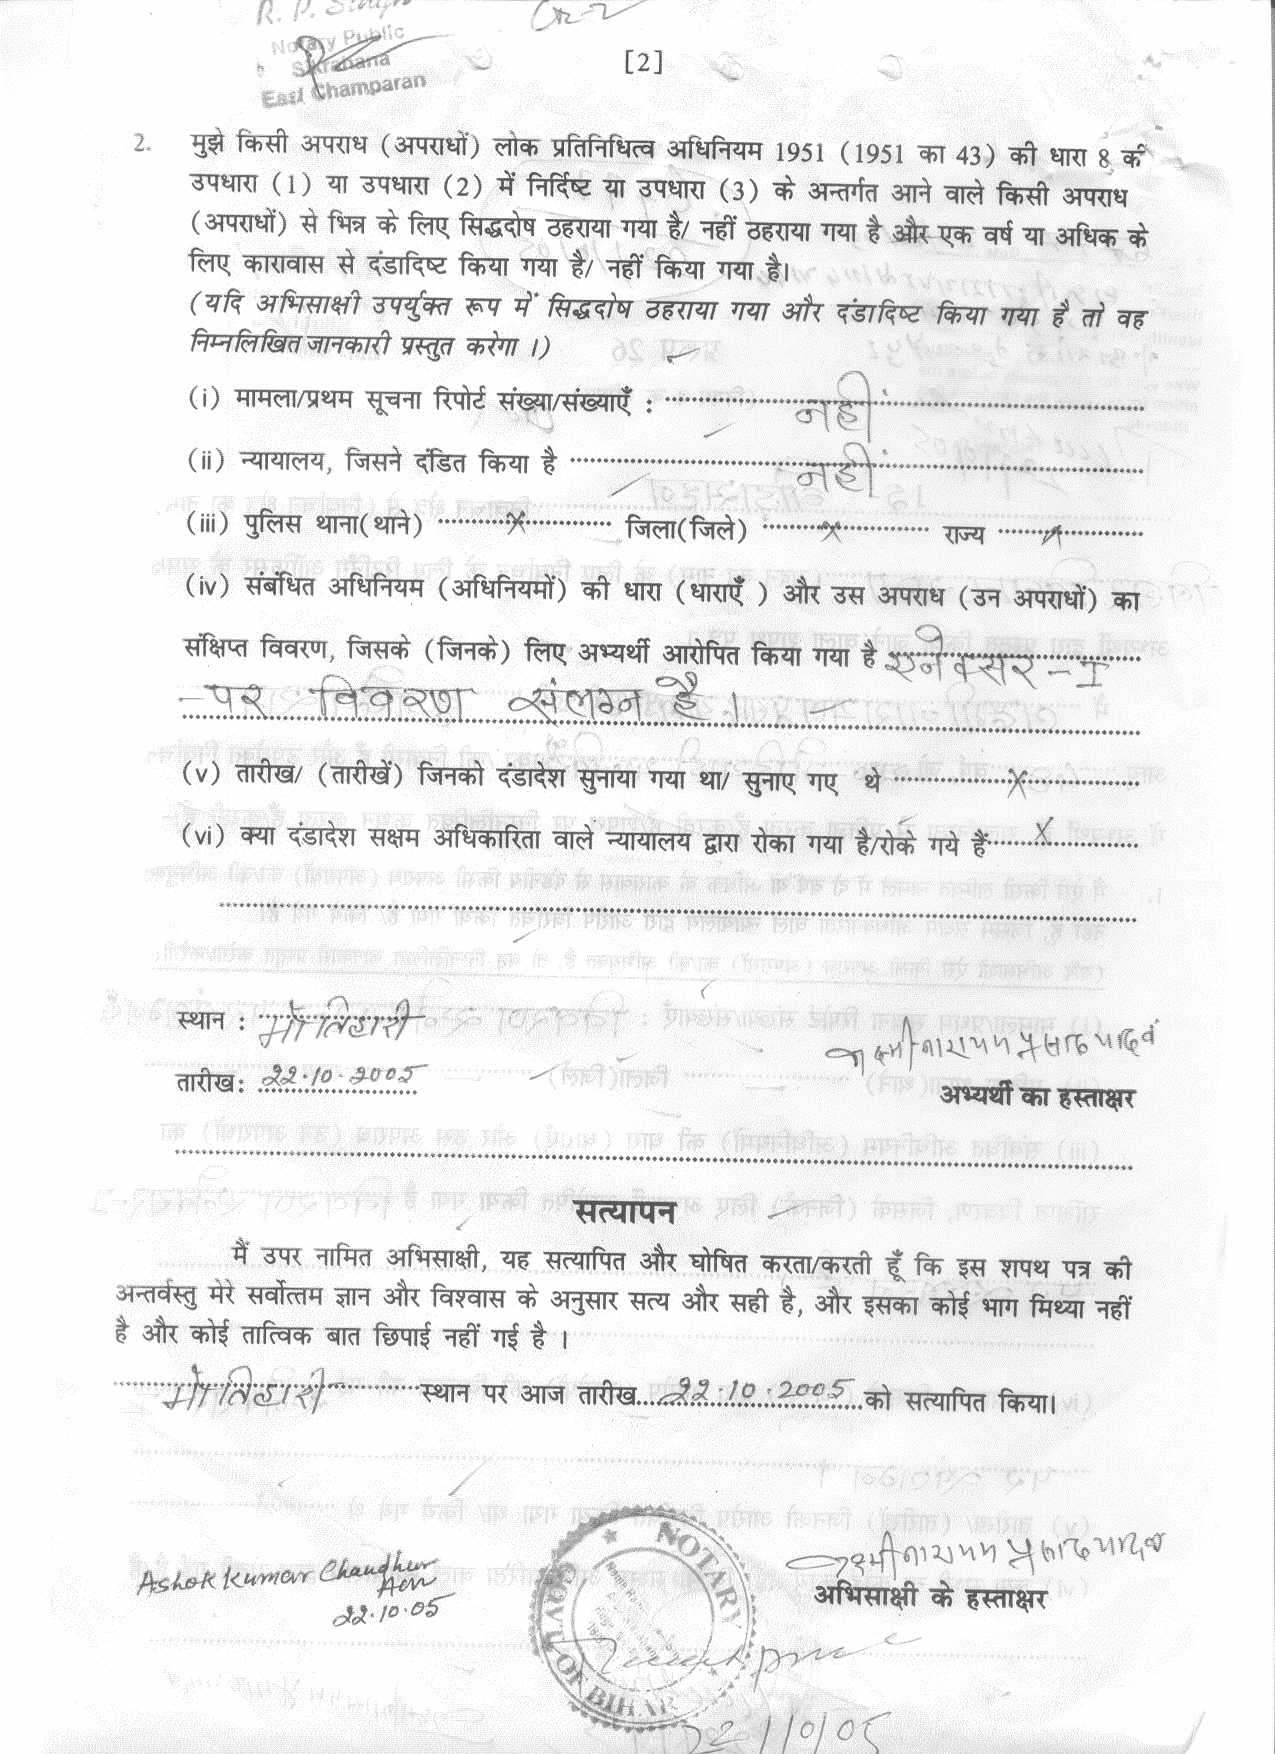 R. P. Singh
Notary Public
Sikrahana
East Champaran
[2]
2. मुझे किसी अपराध (अपराधों) लोक प्रतिनिधित्व अधिनियम 1951 (1951 का 43) की धारा 8 की
उपधारा (1) या उपधारा (2) में निर्दिष्ट या उपधारा (3) के अन्तर्गत आने वाले किसी अपराध
(अपराधों) से भिन्न के लिए सिद्धदोष ठहराया गया है/ नहीं ठहराया गया है और एक वर्ष या अधिक के
लिए कारावास से दंडादिष्ट किया गया है/ नहीं किया गया है।
(यदि अभिसाक्षी उपर्युक्त रूप में सिद्धदोष ठहराया गया और दंडादिष्ट किया गया है तो वह
निम्नलिखित जानकारी प्रस्तुत करेगा ।)
(i) मामला/प्रथम सूचना रिपोर्ट संख्या/संख्याएँ : नहीं
(ii) न्यायालय, जिसने दंडित किया है नहीं
(iii) पुलिस थाना(थाने) x जिला(जिले) x राज्य x
(iv) संबंधित अधिनियम (अधिनियमों) की धारा (धाराएँ ) और उस अपराध (उन अपराधों) का
संक्षिप्त विवरण, जिसके (जिनके) लिए अभ्यर्थी आरोपित किया गया है एनेक्सर - I
- पर विवरण संलग्न है ।
(v) तारीख/ (तारीखें) जिनको दंडादेश सुनाया गया था/ सुनाए गए थे x
(vi) क्या दंडादेश सक्षम अधिकारिता वाले न्यायालय द्वारा रोका गया है/रोके गये हैं x
स्थान : मोतिहारी
लक्ष्मी नारायण प्रसाद यादव
तारीख: 22.10.2005
अभ्यर्थी का हस्ताक्षर
सत्यापन
मैं उपर नामित अभिसाक्षी, यह सत्यापित और घोषित करता/करती हूँ कि इस शपथ पत्र की
अन्तर्वस्तु मेरे सर्वोत्तम ज्ञान और विश्वास के अनुसार सत्य और सही है, और इसका कोई भाग मिथ्या नहीं
है और कोई तात्विक बात छिपाई नहीं गई है ।
मोतिहारी स्थान पर आज तारीख 22.10.2005 को सत्यापित किया।
लक्ष्मी नारायण प्रसाद यादव
अभिसाक्षी के हस्ताक्षर
Ashok Kumar Chaudhury
Adv
22.10.05
NOTARY
GOVT. OF BIHAR
22/10/05